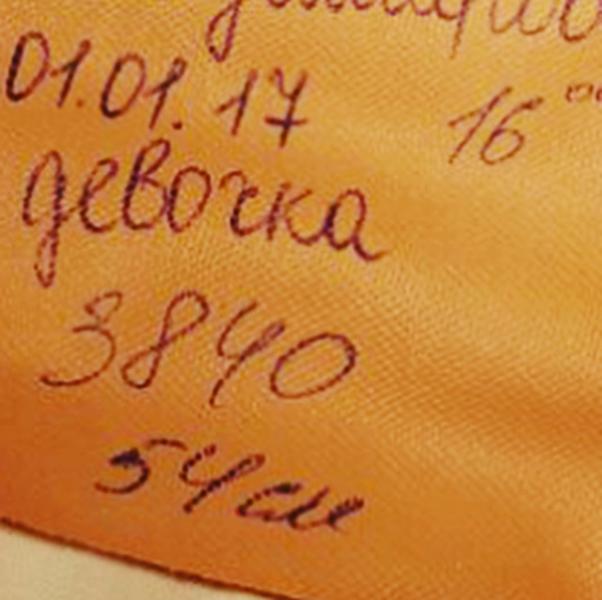 01.01.17 16⁰⁰
девочка
3840
54 см